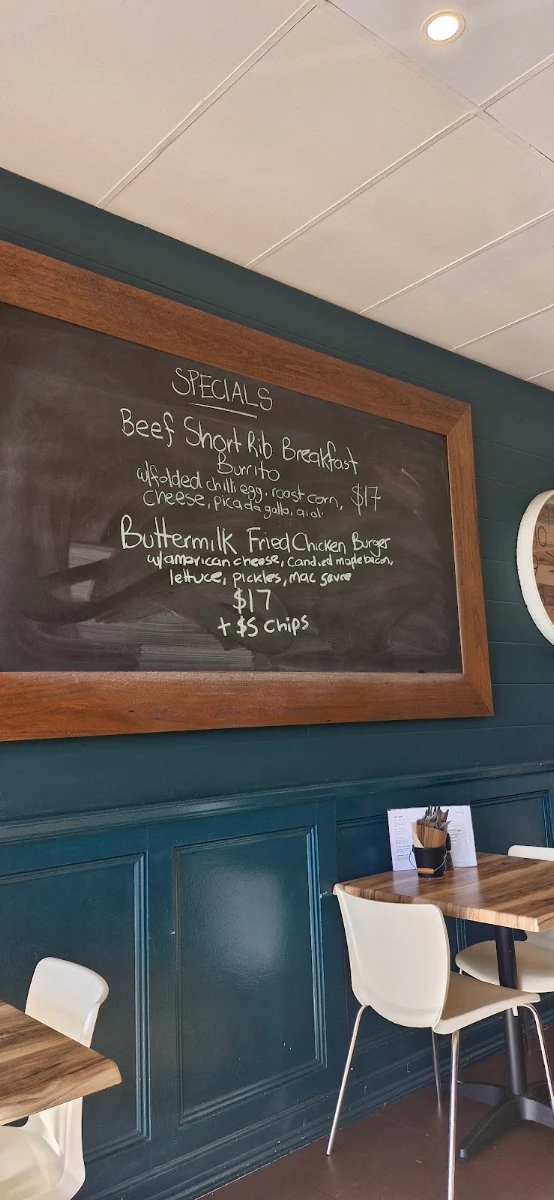 SPECIALS
Beef Short Rib Breakfast
Burrito
w/folded chilli egg, roast corn, $17
cheese, pica da gallo, aioli
Buttermilk Fried Chicken Burger
w/american cheese, candied maple bacon,
lettuce, pickles, mac sauce
$17
+ $5 chips